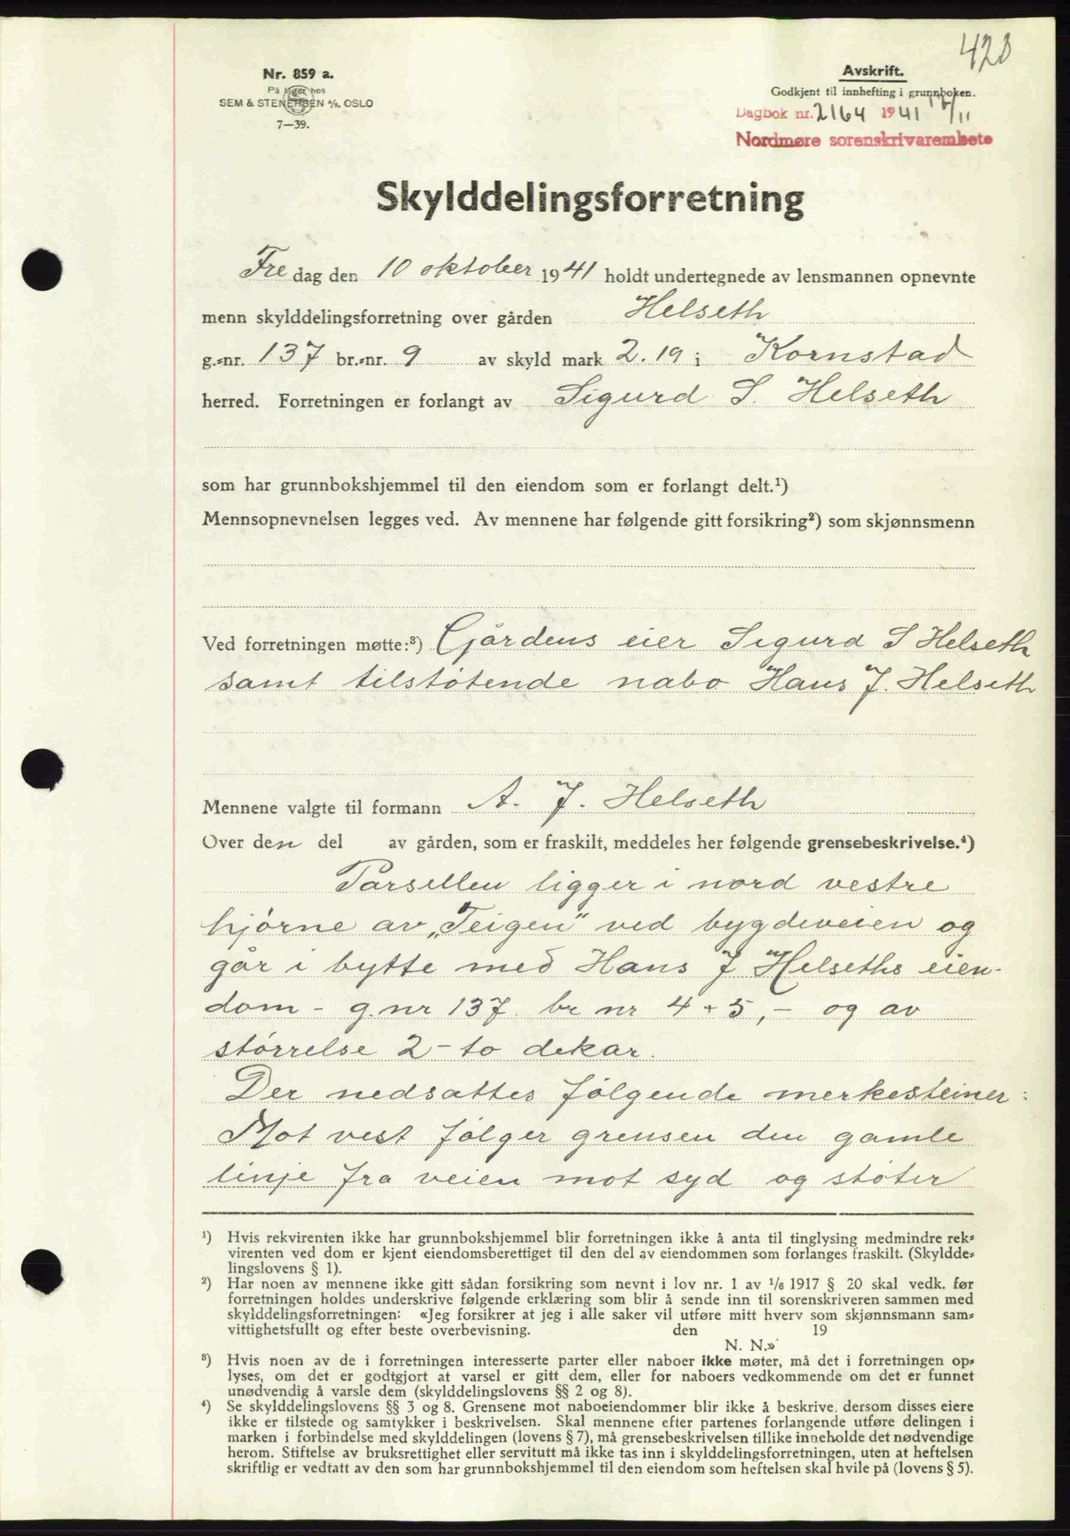 428
Nr. 859 a.
På lager hos
SEM & STENERSEN A/S, OSLO
7—39.
Avskrift.
Godkjent til innhefting i grunnboken.
Dagbok nr. 2164 1941 17/11
Nordmøre sorenskrivarembete
Skylddelingsforretning
Fredag den 10 oktober 1941 holdt undertegnede av lensmannen opnevnte
menn skylddelingsforretning over gården Helseth
g.-nr. 137 br.-nr. 9 av skyld mark 2.19 i Kornstad
herred. Forretningen er forlangt av Sigurd S. Helseth
som har grunnbokshjemmel til den eiendom som er forlangt delt.¹)
Mennsopnevnelsen legges ved. Av mennene har følgende gitt forsikring²) som skjønnsmenn
Ved forretningen møtte:³) Gårdens eier Sigurd S Helseth
samt tilstøtende nabo Hans J. Helseth
Mennene valgte til formann A. J. Helseth
Over den del av gården, som er fraskilt, meddeles her følgende grensebeskrivelse.⁴)
Parsellen ligger i nord vestre
hjørne av „Teigen" ved bygdeveien og
går i bytte med Hans J Helseths eien-
dom - g.nr 137 br nr 4 + 5, - og av
størrelse 2 - to dekar.
Der nedsattes følgende merkesteiner:
Mot vest følger grensen den gamle
linje fra veien mot syd og støter
¹) Hvis rekvirenten ikke har grunnbokshjemmel blir forretningen ikke å anta til tinglysing medmindre rek-
virenten ved dom er kjent eiendomsberettiget til den del av eiendommen som forlanges fraskilt. (Skyldde-
lingslovens § 1).
²) Har noen av mennene ikke gitt sådan forsikring som nevnt i lov nr. 1 av 1/6 1917 § 20 skal vedk. før
forretningen holdes underskrive følgende erklæring som blir å sende inn til sorenskriveren sammen med
skylddelingsforretningen: «Jeg forsikrer at jeg i alle saker vil utføre mitt hverv som skjønnsmann sam-
vittighetsfullt og efter beste overbevisning. den 19
N. N.»
³) Hvis noen av de i forretningen interesserte parter eller naboer ikke møter, må det i forretningen op-
lyses, om det er godtgjort at varsel er gitt dem, eller for naboers vedkommende om det er funnet
unødvendig å varsle dem (skylddelingslovens §§ 2 og 8).
⁴) Se skylddelingslovens §§ 3 og 8. Grensene mot naboeiendommer blir ikke å beskrive, dersom disses eiere
ikke er tilstede og samtykker i beskrivelsen. Skal mennene efter partenes forlangende utføre delingen i
marken i forbindelse med skylddelingen (lovens § 7), må grensebeskrivelsen tillike inneholde det nødvendige
herom. Stiftelse av bruksrettighet eller servitutt må ikke tas inn i skylddelingsforretningen, uten at heftelsen
skriftlig er vedtatt av den som har grunnbokshjemmel til den eiendom som heftelsen skal hvile på (lovens § 5).